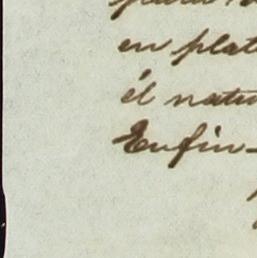 en plat
él natu
Enfin-